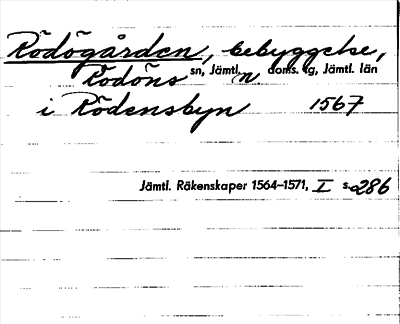 Rödögården, bebyggelse,
Rödöns sn, Jämtl. n. doms. tg, Jämtl. län
i Rödensbyn 1567
Jämtl. Räkenskaper 1564–1571, I s. 286